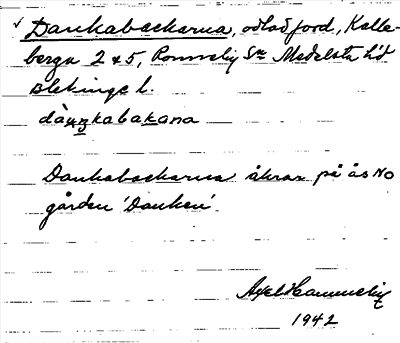 ✓ Dankabackarna, odlad jord, Kalle-
berga 2 & 5, Ronneby Sn Medelsta hd
Blekinge l.
dànkabakana
Dankabackarna åkrar på ås NO
gården 'Danken'.
Axel
1942